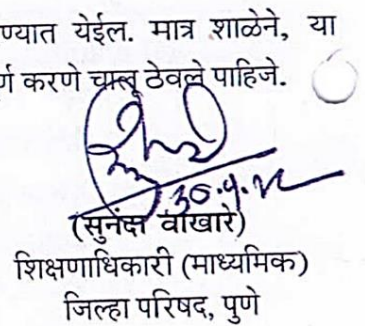 ण्यात येईल. मात्र शाळेने, या
र्ण करणे चालू ठेवले पाहिजे.
(सुनंदा वाखारे)
शिक्षणाधिकारी (माध्यमिक)
जिल्हा परिषद, पुणे